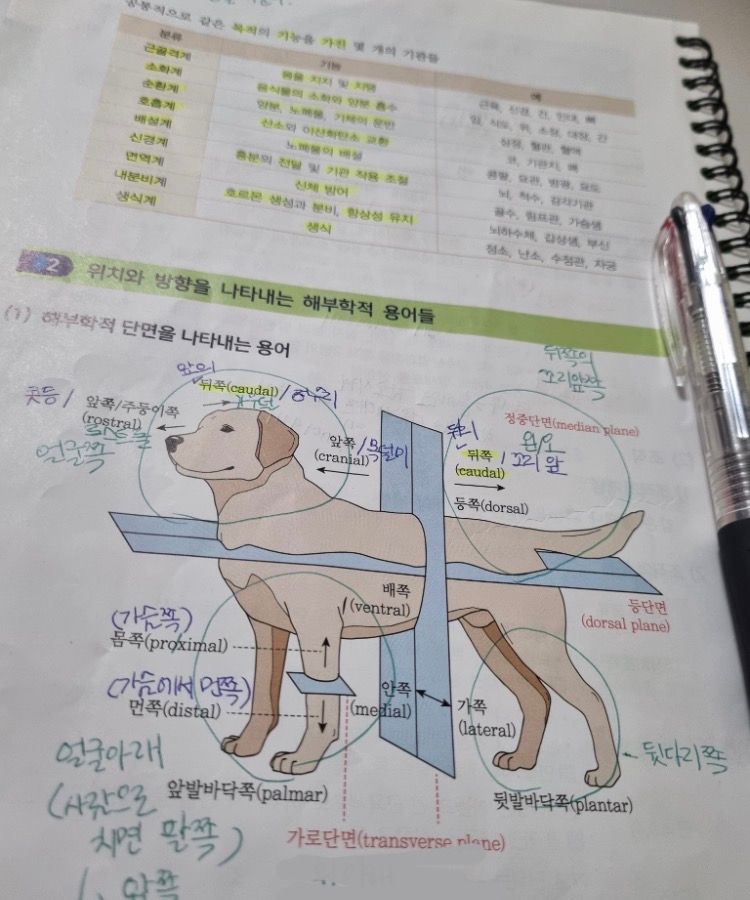 공통적으로 같은 목적의 기능을 가진 몇 개의 기관들
분류 기능 예
근골격계 몸을 지지 및 지탱 근육, 신경, 건, 인대, 뼈
소화계 음식물의 소화와 양분 흡수 입, 식도, 위, 소장, 대장, 간
순환계 양분, 노폐물, 기체의 운반 심장, 혈관, 혈액
호흡계 산소와 이산화탄소 교환 코, 기관지, 폐
배설계 노폐물의 배설 콩팥, 요관, 방광, 요도
신경계 흥분의 전달 및 기관 작용 조절 뇌, 척수, 감각기관
면역계 신체 방어 골수, 림프관, 가슴샘
내분비계 호르몬 생성과 분비, 항상성 유지 뇌하수체, 갑상샘, 부신
생식계 생식 정소, 난소, 수정관, 자궁
2 위치와 방향을 나타내는 해부학적 용어들
(1) 해부학적 단면을 나타내는 용어
뒤쪽의
꼬리앞쪽
앞의
뒤쪽(caudal)
콧등 /
앞쪽/주둥이쪽
(rostral)
얼굴쪽
앞쪽
(cranial)
정중단면(median plane)
뒤쪽 / 꼬리 앞
(caudal)
등쪽(dorsal)
배쪽
(ventral)
등단면
(dorsal plane)
(가슴쪽)
몸쪽(proximal)
(가슴에서 먼쪽)
먼쪽(distal)
안쪽
(medial)
가쪽
(lateral)
얼굴아래
(사람으로
치면 팔쪽)
앞발바닥쪽(palmar)
뒷다리쪽
뒷발바닥쪽(plantar)
가로단면(transverse plane)
앞쪽